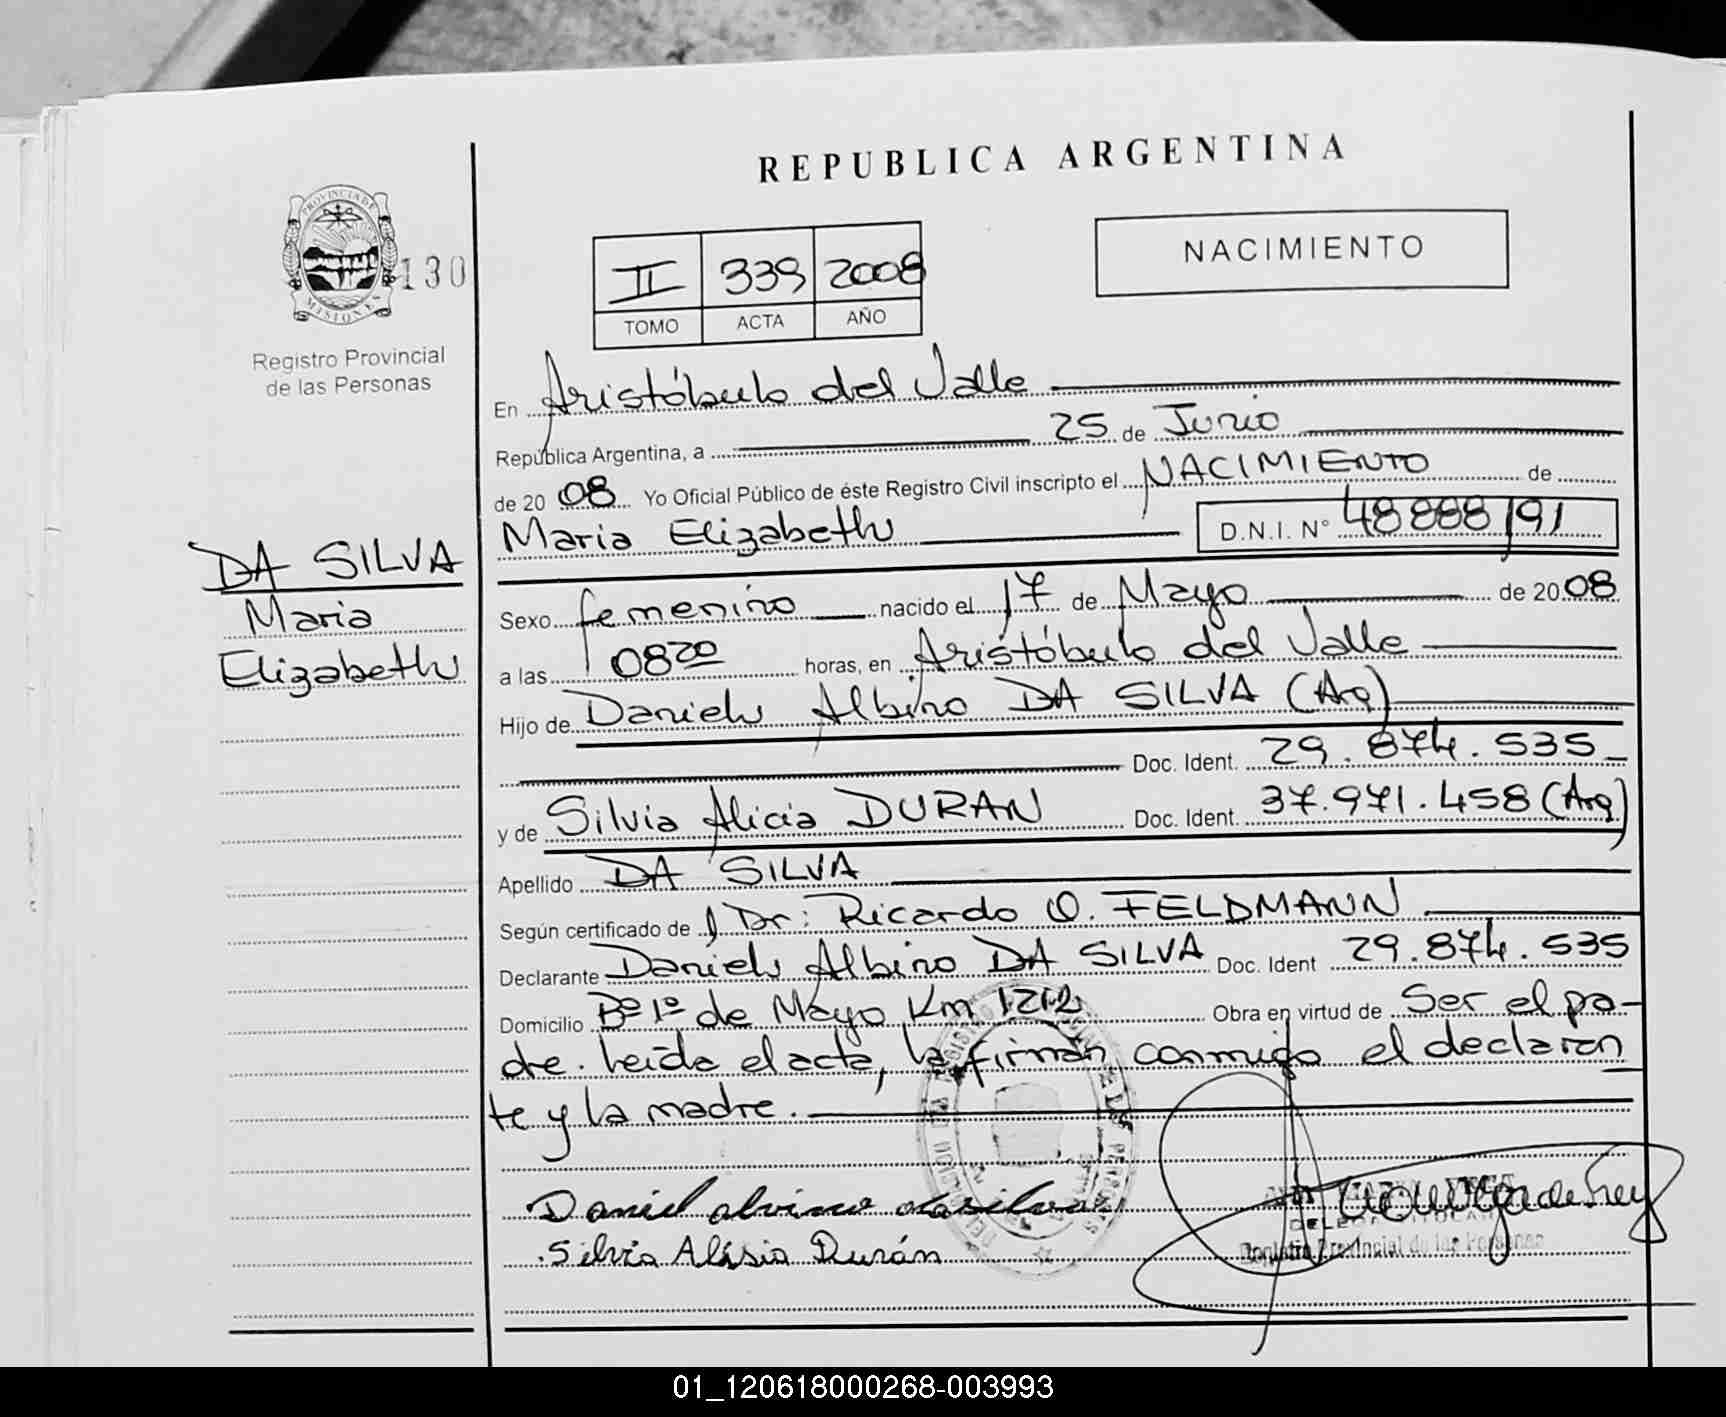 REPUBLICA ARGENTINA
PROVINCIA DE
MISIONES
130
Registro Provincial
de las Personas
II 339 2008
TOMO ACTA AÑO
NACIMIENTO
En Aristóbulo del Valle
República Argentina, a 25 de Junio
de 20 08 Yo Oficial Público de éste Registro Civil inscripto el NACIMIENTO de
Maria Elizabeth D.N.I. N° 48888191
DA SILVA
Maria
Elizabeth
Sexo femenino nacido el 17 de Mayo de 20 08
a las 0820 horas, en Aristóbulo del Valle
Hijo de Daniel Albino DA SILVA (Arg)
Doc. Ident. 29.874.535
y de Silvia Alicia DURAN Doc. Ident. 37.971.458 (Arg)
Apellido DA SILVA
Según certificado de Dr: Ricardo O. FELDMANN
Declarante Daniel Albino DA SILVA Doc. Ident 29.874.535
Domicilio Bº 1º de Mayo Km 1212 Obra en virtud de Ser el pa-
dre. Leída el acta, la firman conmigo el declaran
te y la madre.
Daniel alvino dasilva
Silvia Alisia Durán
Registro Provincial de las Personas
01_120618000268-003993